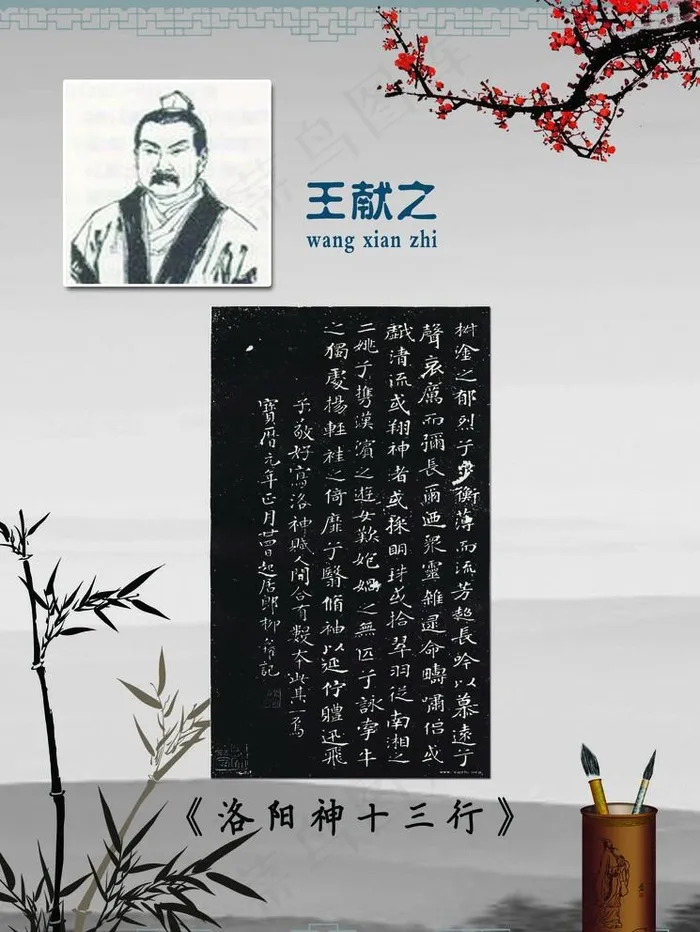 王献之
wang xian zhi
樹塗之郁烈兮步衡薄而流芳超長吟以慕遠兮
聲哀厲而彌長爾迺衆靈雜遝命疇嘯侶或
戲清流或翔神者或採明珠或拾翠羽從南湘之
二姚兮攜漢濱之遊女歎匏媧之無匹兮詠牽牛
之獨處揚輕袿之倚靡兮翳脩袖以延佇體迅飛
子敬好寫洛神賦人間合有數本此其一焉
寶曆元年正月廿日起居郎柳記
《洛阳神十三行》